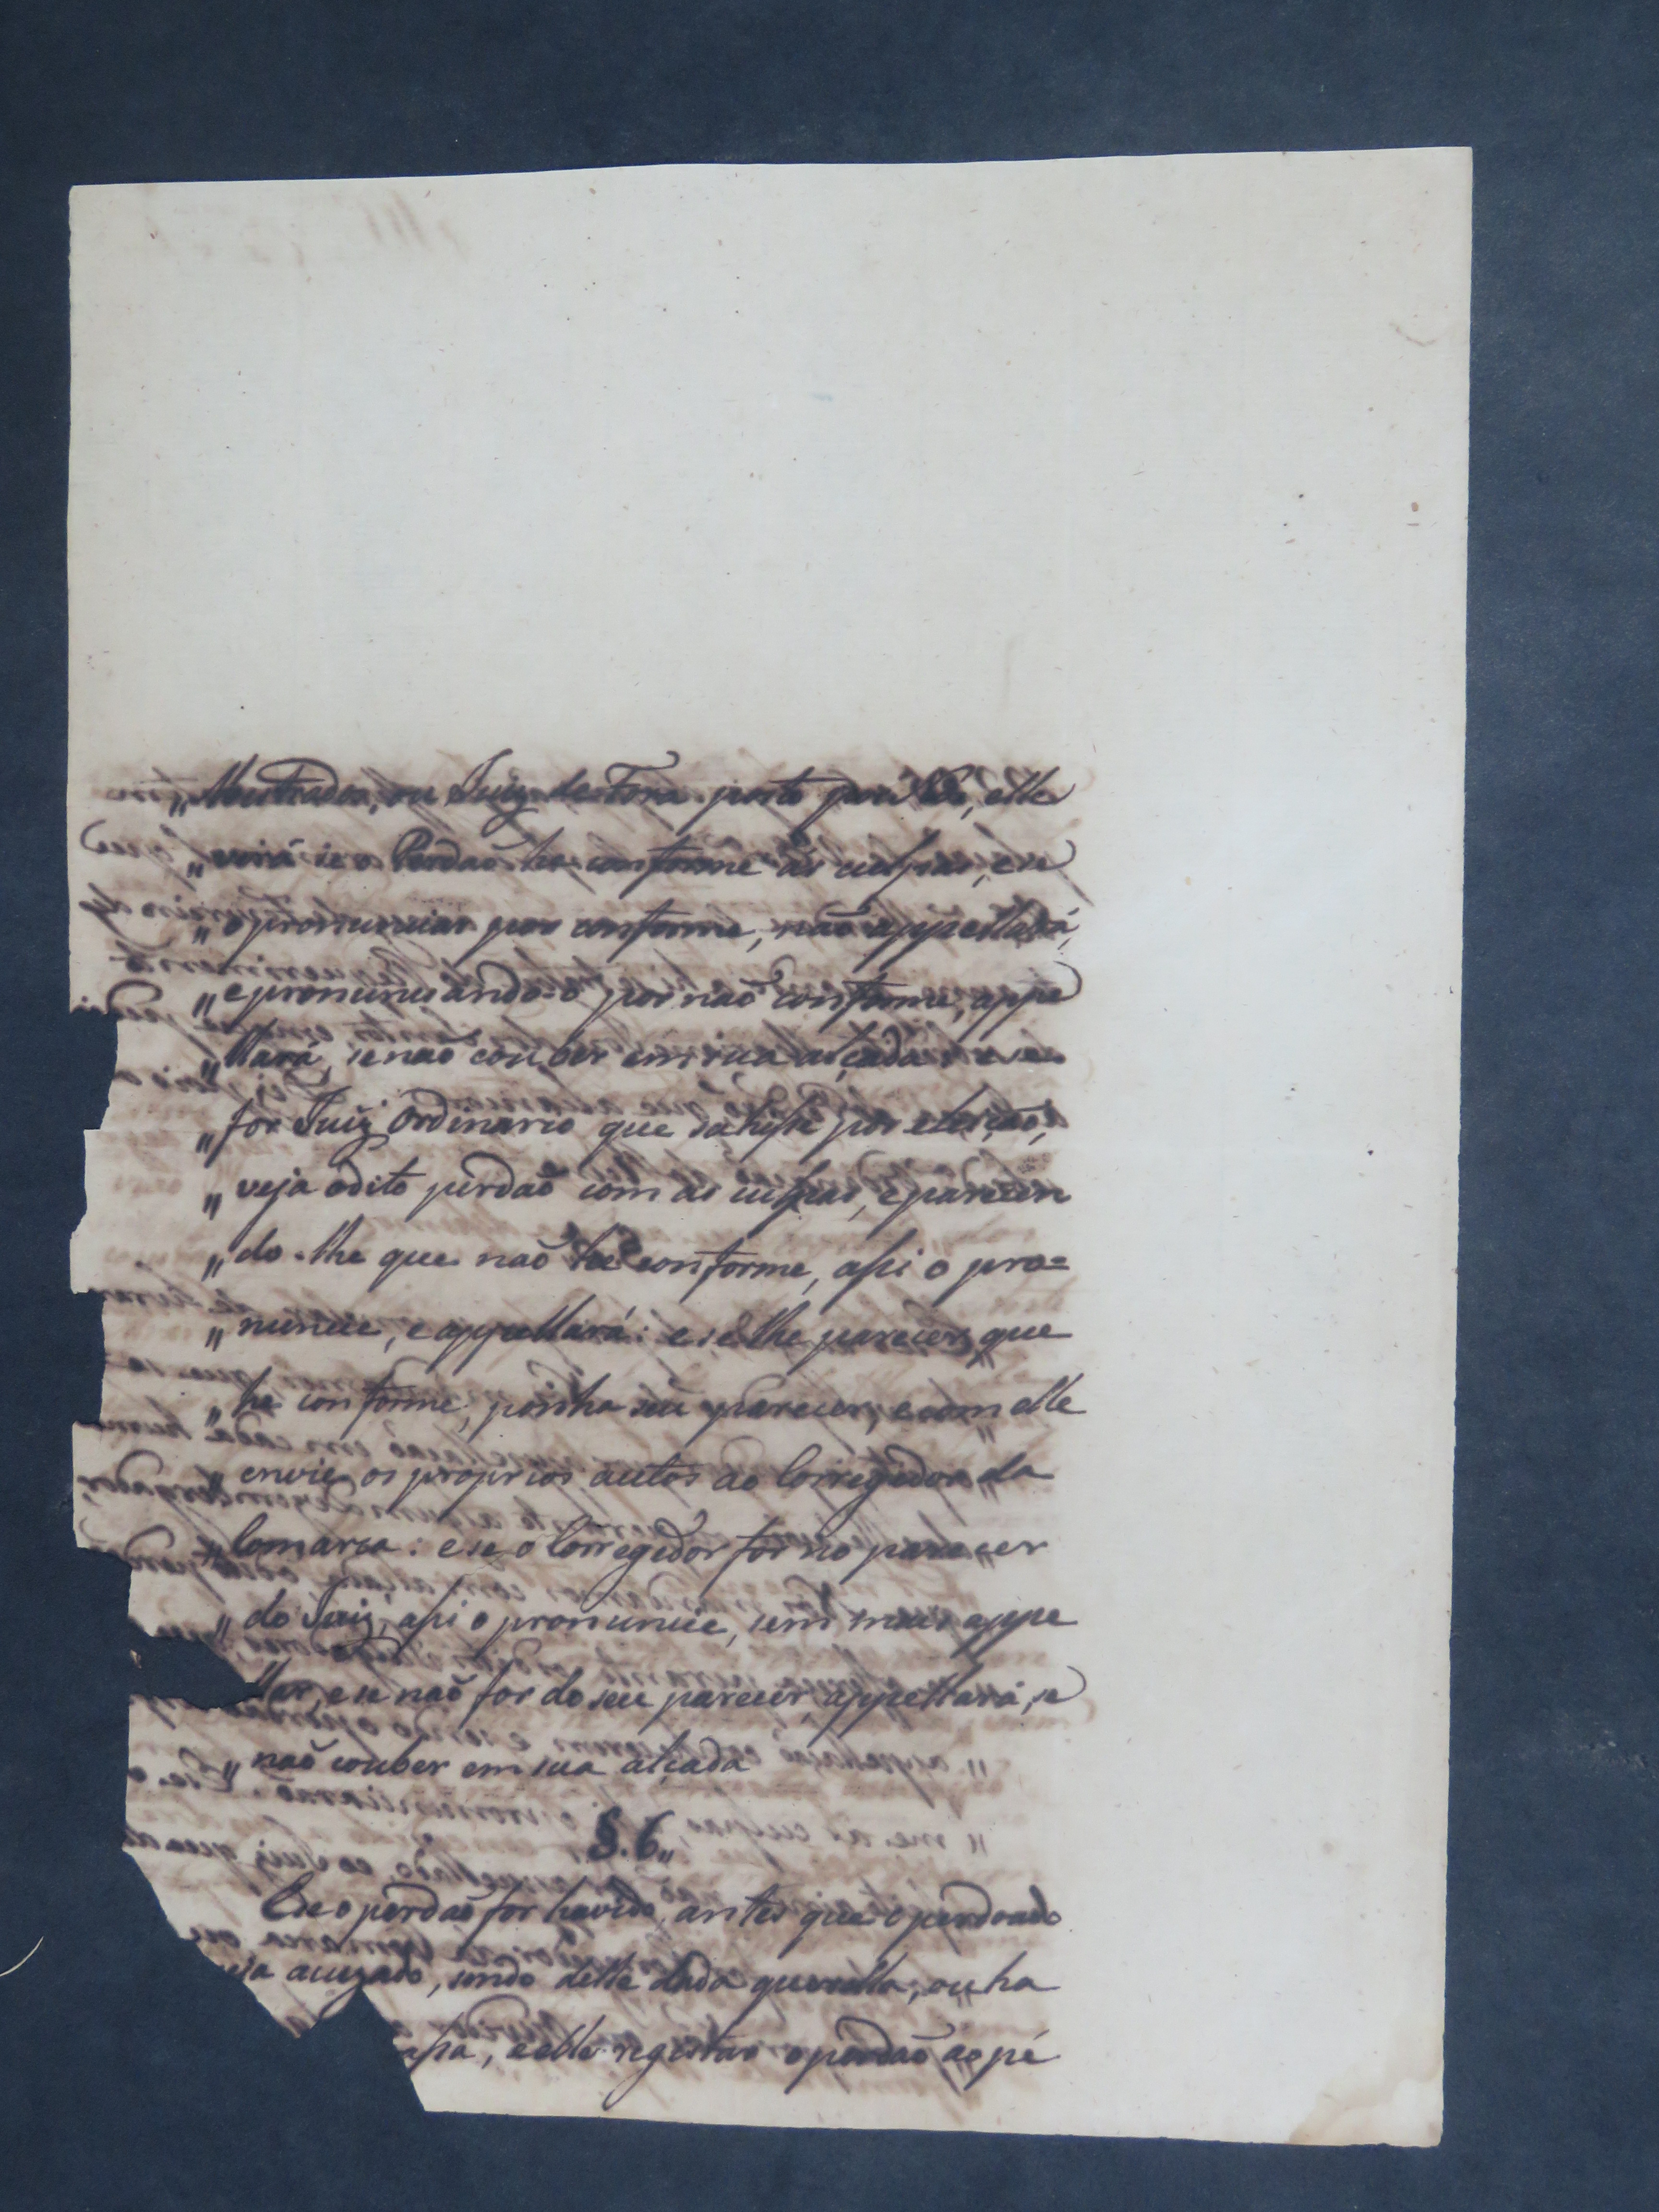 " Ministrador, ou Juiz de Fora posto por Nós, elle
" verá se o Perdaõ he conforme ás culpas, e se
" o pronunciar por conforme, naõ appellará,
" e pronunciando-o por naõ conforme, appe
" llará, se naõ couber em sua alçada: e se
" for Juiz Ordinario que sahisse por eleiçaõ,
" veja o dito perdaõ com as culpas, e parecen
" do-lhe que naõ he conforme, assi o pro=
" nuncie, e appellará: e se lhe parecer, que
" he conforme, ponha seu parecer, e com elle
" envie os proprios autos ao Corregedor da
" Comarca: e se o Corregedor for no parecer
" do Juiz, assi o pronuncie, sem mais appe
llar, e se naõ for do seu parecer, appellará, se
" naõ couber em sua alçada
§. 6"
E se o perdaõ for havido, antes que o perdoado
seja acuzado, sendo delle dada querella, ou ha
assa, e elle registar o perdaõ ao pé